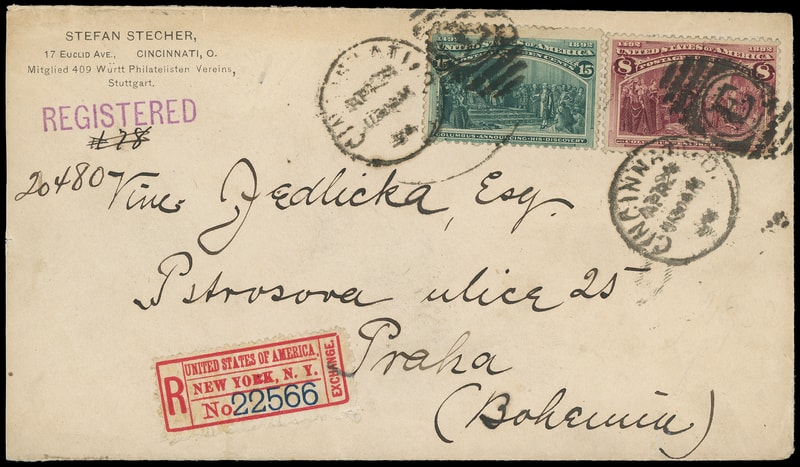 STEFAN STECHER,
17 EUCLID AVE., CINCINNATI, O.
Mitglied 409 Württ Philatelisten Vereins,
Stuttgart.
REGISTERED
# 78
20480
CINCINNATI, O.
1492 1892
UNITED STATES OF AMERICA
15 15
COLUMBUS ANNOUNCING HIS DISCOVERY
1492 1892
UNITED STATES OF AMERICA
8 8
CINCINNATI, O.
Vinc. Jedlicka, Esq.
Pstrosova ulice 25
Praha
(Bohemia)
R
UNITED STATES OF AMERICA.
NEW YORK, N. Y.
No 22566
EXCHANGE.